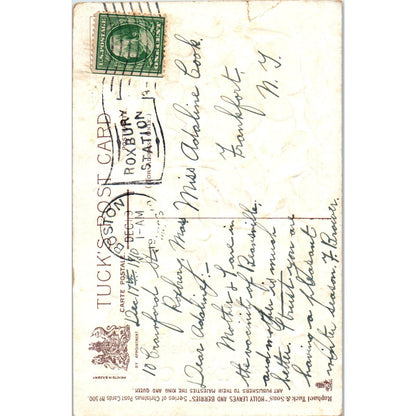 TUCK'S POST CARD
CARTE POSTALE
BY APPOINTMENT
U.S. POSTAGE
1 CENT 1
BOSTON
DEC 19
1 - AM
ROXBURY
STATION
Miss Adaline Cook.
Frankfort,
N. Y.
Dec 17th, 1910
10 Crawford St.
Roxbury, Mass
Dear Adaline:-
Mother & I are in
the vicinity of
and mother is much
better. Trust you are
having a pleasant
winter season. F. Beaver.
Raphael Tuck & Sons' "HOLLY LEAVES AND BERRIES" Series of Christmas Post Cards Nº 500.
ART PUBLISHERS TO THEIR MAJESTIES THE KING AND QUEEN.